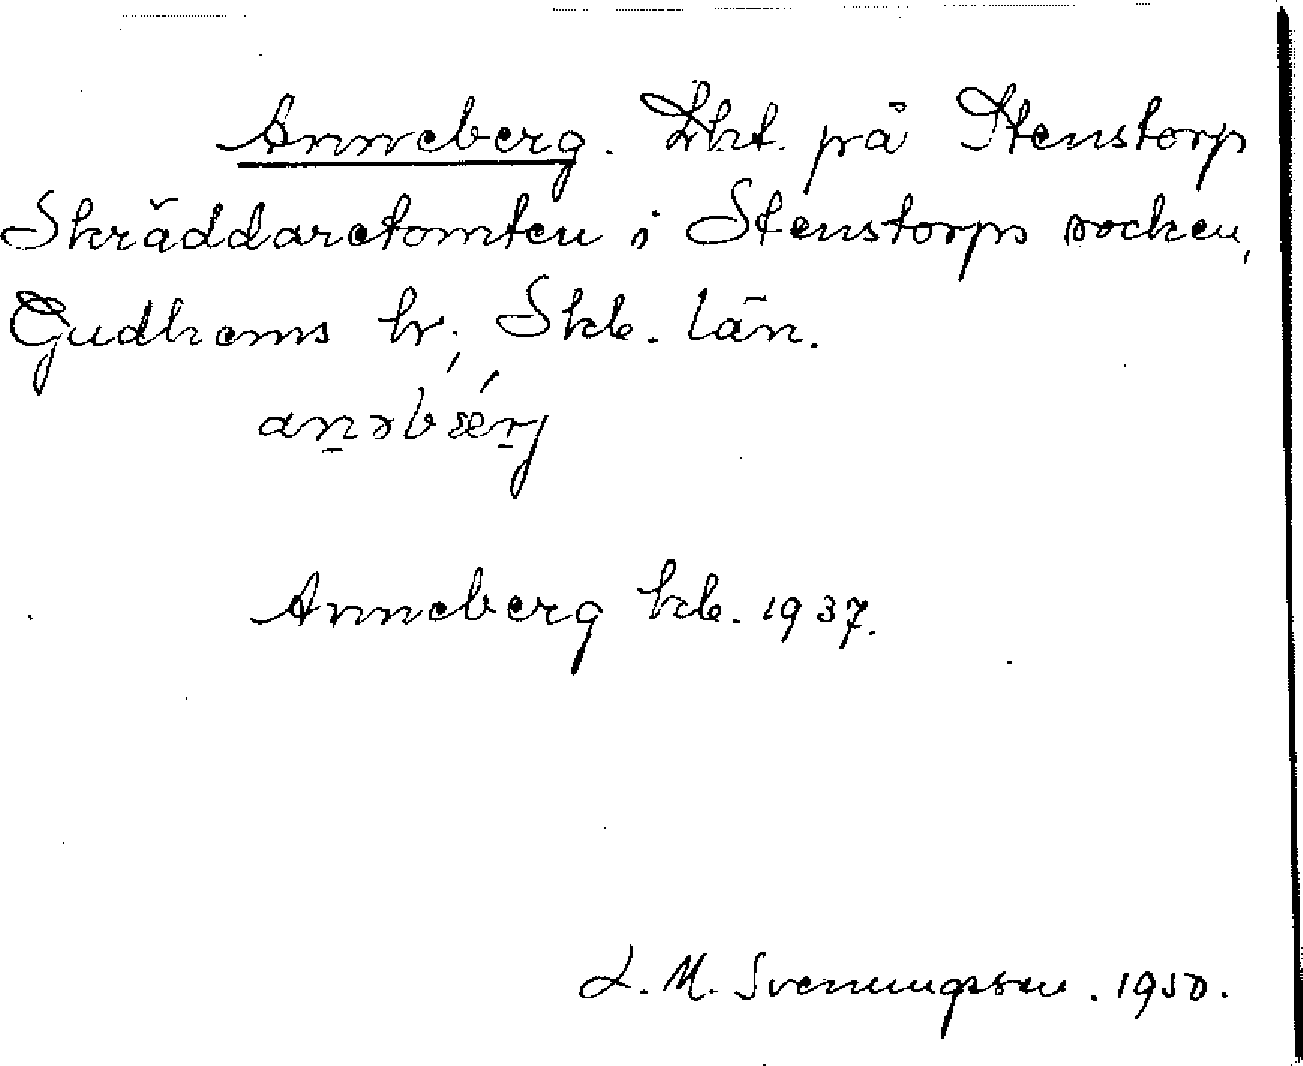 Anneberg. Lht. på Stenstorp
Skräddaretomten i Stenstorps socken,
Gudhems hr, Skb. län.
anəbærj
Anneberg kb. 1937.
L. M. Svenungsson. 1950.